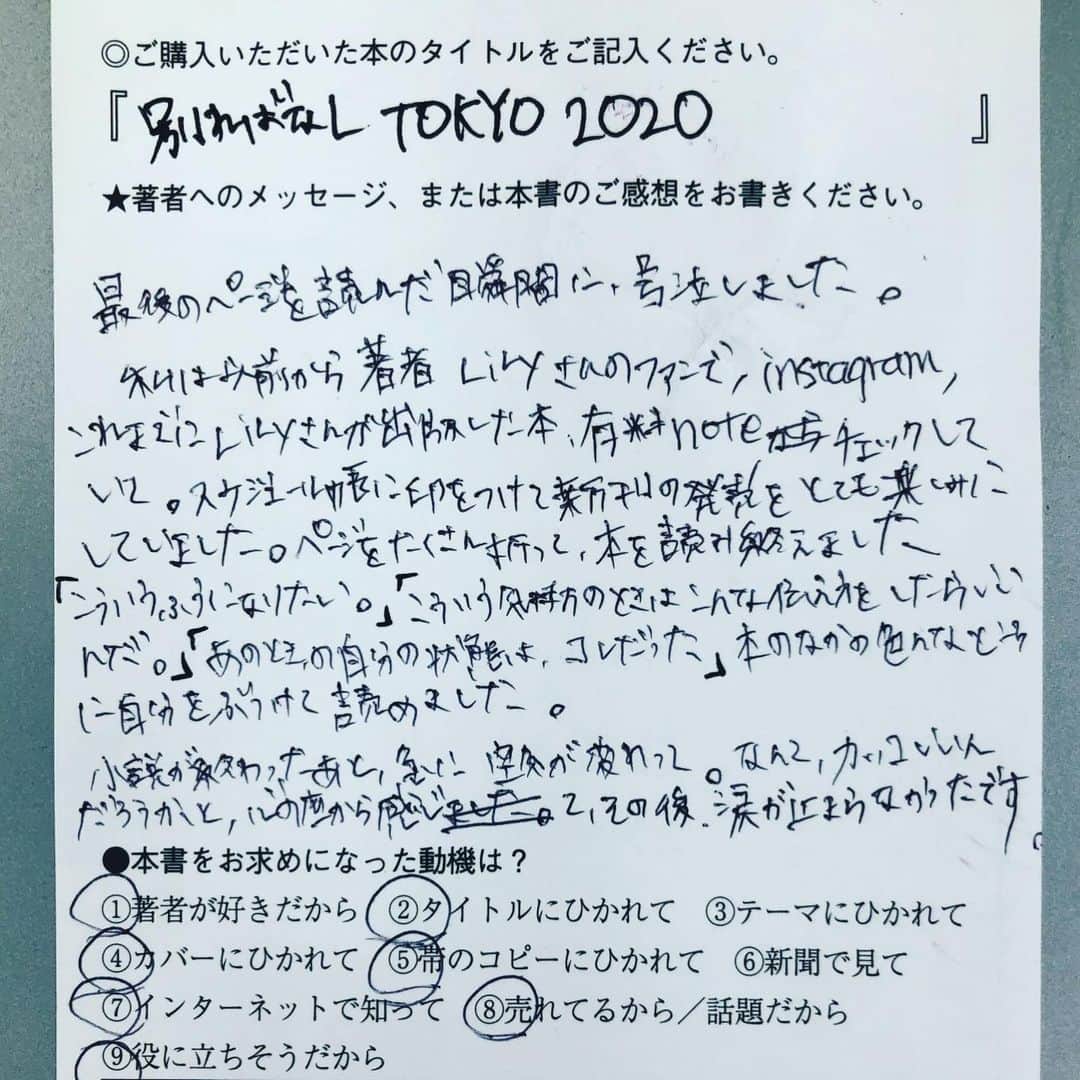 ◎ご購入いただいた本のタイトルをご記入ください。
『別ればなし TOKYO 2020』
★著者へのメッセージ、または本書のご感想をお書きください。
最後のページを読んだ瞬間に、号泣しました。
私は以前から著者 LiLyさんのファンで, instagram,
これまでにLiLyさんが出版した本、有料noteもチェックして
いて。スケジュール帳に印をつけて新刊の発売をとても楽しみに
していました。ページをたくさん折って、本を読み終えました
「こういうふうになりたい。」「こういう気持ちのときはこんな伝え方をしたらいい
んだ。」「あのときの自分の状態は、コレだった」本のなかの色んなところ
に自分をぶつけて読めました。
小説が終わったあと、急に空気が変わって。なんて, カッコいいん
だろうかと, 心の底から感じて、その後、涙が止まらなかったです。
●本書をお求めになった動機は？
①著者が好きだから ②タイトルにひかれて ③テーマにひかれて
④カバーにひかれて ⑤帯のコピーにひかれて ⑥新聞で見て
⑦インターネットで知って ⑧売れてるから／話題だから
⑨役に立ちそうだから